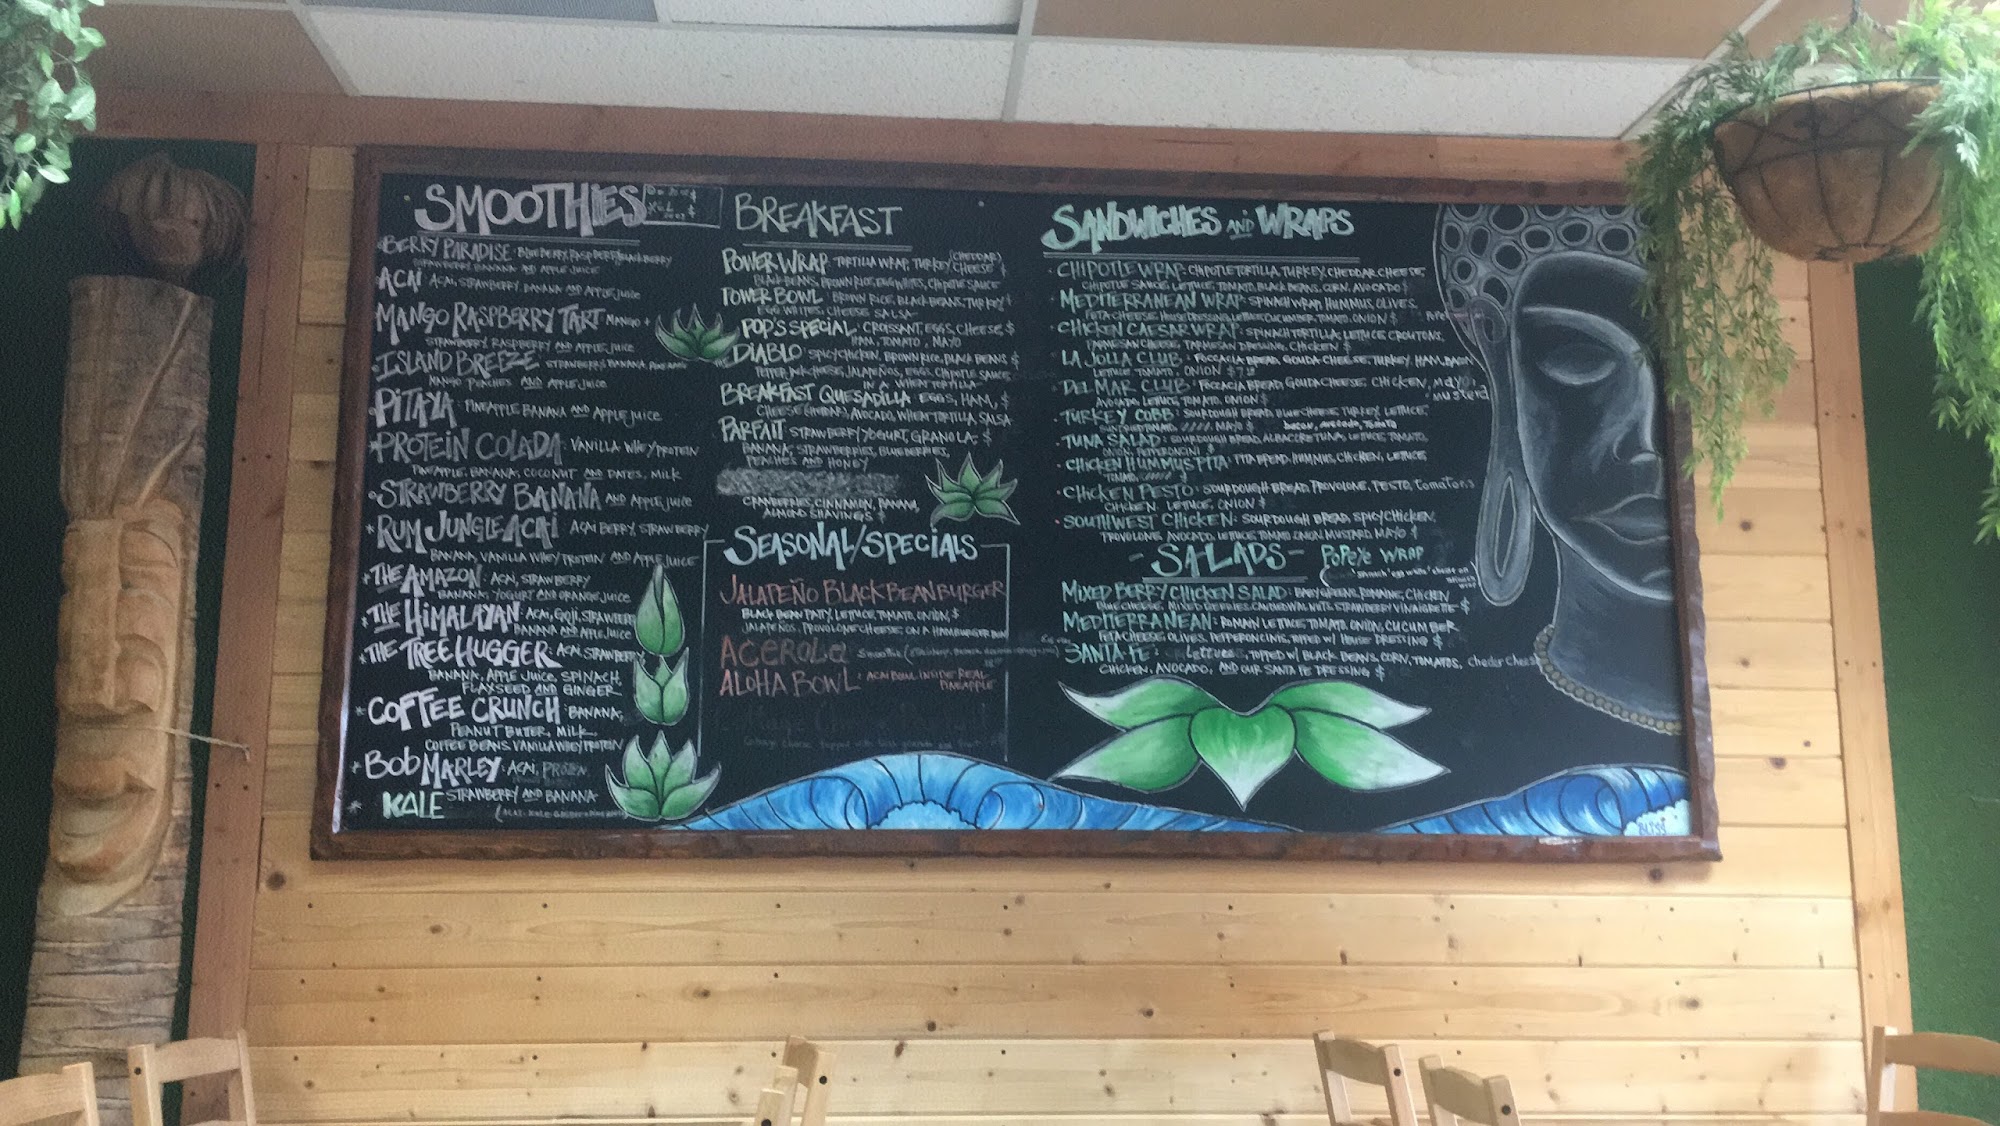 SMOOTHIES
BERRY PARADISE: BLUEBERRY, RASPBERRY, BLACKBERRY
STRAWBERRY, BANANA AND APPLE JUICE
ACAI ACAI, STRAWBERRY, BANANA AND APPLE JUICE
MANGO RASPBERRY TART MANGO +
STRAWBERRY, RASPBERRY AND APPLE JUICE
ISLAND BREEZE STRAWBERRY, BANANA,
MANGO PEACHES AND APPLE JUICE
PITAYA: PINEAPPLE BANANA AND APPLE JUICE
PROTEIN COLADA VANILLA WHEY PROTEIN
PINEAPPLE, BANANA, COCONUT AND DATES, MILK
STRAWBERRY BANANA AND APPLE JUICE
RUM JUNGLE ACAI ACAI BERRY, STRAWBERRY
BANANA, VANILLA WHEY PROTEIN AND APPLE JUICE
THE AMAZON: ACAI, STRAWBERRY
BANANA, YOGURT AND ORANGE JUICE
THE HIMALAYAN: ACAI, GOJI, STRAWBERRY
BANANA AND APPLE JUICE
THE TREE HUGGER: ACAI, STRAWBERRY
BANANA, APPLE JUICE, SPINACH,
FLAXSEED AND GINGER
COFFEE CRUNCH: BANANA,
PEANUT BUTTER, MILK,
COFFEE BEANS, VANILLA WHEY PROTEIN
BOB MARLEY: ACAI, PROTEIN
STRAWBERRY AND BANANA
KALE
BREAKFAST
POWER WRAP TORTILLA WRAP, TURKEY, CHEESE (CHEDDAR) $
BLACK BEANS, BROWN RICE, EGG WHITES, CHIPOTLE SAUCE
POWER BOWL: BROWN RICE, BLACK BEANS, TURKEY
EGG WHITES, CHEESE, SALSA
POP'S SPECIAL: CROISSANT, EGGS, CHEESE, $
HAM, TOMATO, MAYO
DIABLO: SPICY CHICKEN, BROWN RICE, BLACK BEANS $
PEPPER JACK CHEESE, JALAPEÑOS, EGGS, CHIPOTLE SAUCE
IN A WHEAT TORTILLA
BREAKFAST QUESADILLA EGGS, HAM, $
CHEESE (CHEDDAR), AVOCADO, WHEAT TORTILLA, SALSA
PARFAIT STRAWBERRY YOGURT, GRANOLA, $
BANANA, STRAWBERRIES, BLUEBERRIES,
PEACHES AND HONEY
CRANBERRIES, CINNAMON, BANANA,
ALMOND SHAVINGS $
SEASONAL/SPECIALS
JALAPEÑO BLACK BEAN BURGER
BLACK BEAN PATTY, LETTUCE, TOMATO, ONION, $
JALAPEÑOS, PROVOLONE CHEESE ON A HAMBURGER BUN
ACEROLA SMOOTHIE
ALOHA BOWL: ACAI BOWL INSIDE REAL
PINEAPPLE
SANDWICHES AND WRAPS
CHIPOTLE WRAP: CHIPOTLE TORTILLA, TURKEY, CHEDDAR CHEESE,
CHIPOTLE SAUCE, LETTUCE, TOMATO, BLACK BEANS, CORN, AVOCADO $
MEDITERRANEAN WRAP: SPINACH WRAP, HUMMUS, OLIVES,
FETA CHEESE, HOUSE DRESSING, LETTUCE, CUCUMBER, TOMATO, ONION $
CHICKEN CAESAR WRAP: SPINACH TORTILLA, LETTUCE, CROUTONS,
PARMESAN CHEESE, PARMESAN DRESSING, CHICKEN $
LA JOLLA CLUB: FOCCACIA BREAD, GOUDA CHEESE, TURKEY, HAM, BACON
LETTUCE, TOMATO, ONION $
DEL MAR CLUB: FOCCACIA BREAD, GOUDA CHEESE, CHICKEN, mayo, mustard
AVOCADO, LETTUCE, TOMATO, ONION $
TURKEY COBB: SOURDOUGH BREAD, BLUE CHEESE, TURKEY, LETTUCE,
MAYO $ bacon, avocado, tomato
TUNA SALAD: SOURDOUGH BREAD, ALBACORE TUNA, LETTUCE, TOMATO,
ONION, PEPPERONCINI $
CHICKEN HUMMUS PITA: PITA BREAD, HUMMUS, CHICKEN, LETTUCE,
TOMATO, $
CHICKEN PESTO: SOURDOUGH BREAD, PROVOLONE, PESTO, tomatoes
CHICKEN, LETTUCE, ONION $
SOUTHWEST CHICKEN: SOURDOUGH BREAD, SPICY CHICKEN,
PROVOLONE, AVOCADO, LETTUCE, TOMATO, ONION, MUSTARD, MAYO $
- SALADS - POPEYE WRAP
MIXED BERRY CHICKEN SALAD: BABY GREENS, ROMAINE, CHICKEN
BLUE CHEESE, MIXED BERRIES, CANDIED WALNUTS, STRAWBERRY VINAIGRETTE $
MEDITERRANEAN: ROMAIN LETTUCE, TOMATO, ONION, CUCUMBER
FETA CHEESE, OLIVES, PEPPERONCINIS, TOPPED W/ HOUSE DRESSING $
SANTA FE: Lettuce, TOPPED W/ BLACK BEANS, CORN, TOMATOS, Chedar Cheese
CHICKEN, AVOCADO, AND OUR SANTA FE DRESSING $